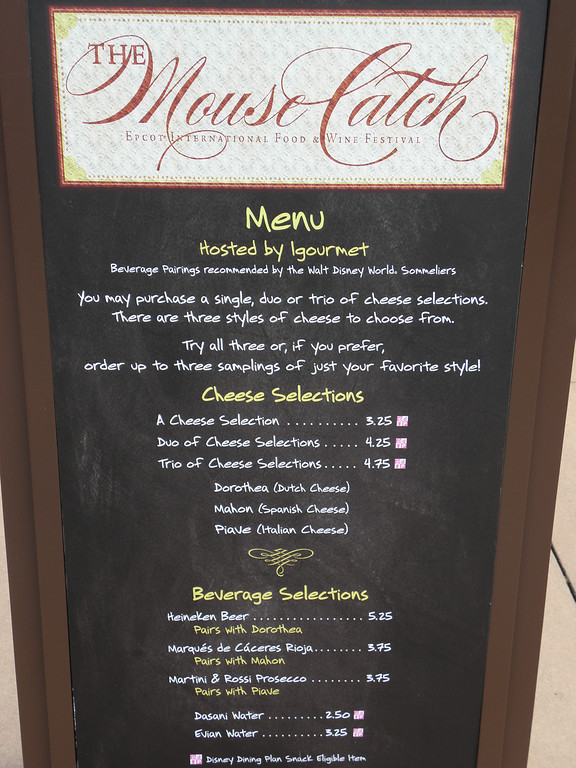 THE
Mouse Catch
EPCOT INTERNATIONAL FOOD & WINE FESTIVAL
Menu
Hosted by Igourmet
Beverage Pairings recommended by the Walt Disney World® Sommeliers
You may purchase a single, duo or trio of cheese selections.
There are three styles of cheese to choose from.
Try all three or, if you prefer,
order up to three samplings of just your favorite style!
Cheese Selections
A Cheese Selection .......... 3.25
Duo of Cheese Selections ..... 4.25
Trio of Cheese Selections ..... 4.75
Dorothea (Dutch Cheese)
Mahon (Spanish Cheese)
Piave (Italian Cheese)
Beverage Selections
Heineken Beer ................. 5.25
Pairs with Dorothea
Marqués de Cáceres Rioja........ 3.75
Pairs with Mahon
Martini & Rossi Prosecco ........ 3.75
Pairs with Piave
Dasani Water ......... 2.50
Evian Water .......... 3.25
Disney Dining Plan Snack Eligible Item